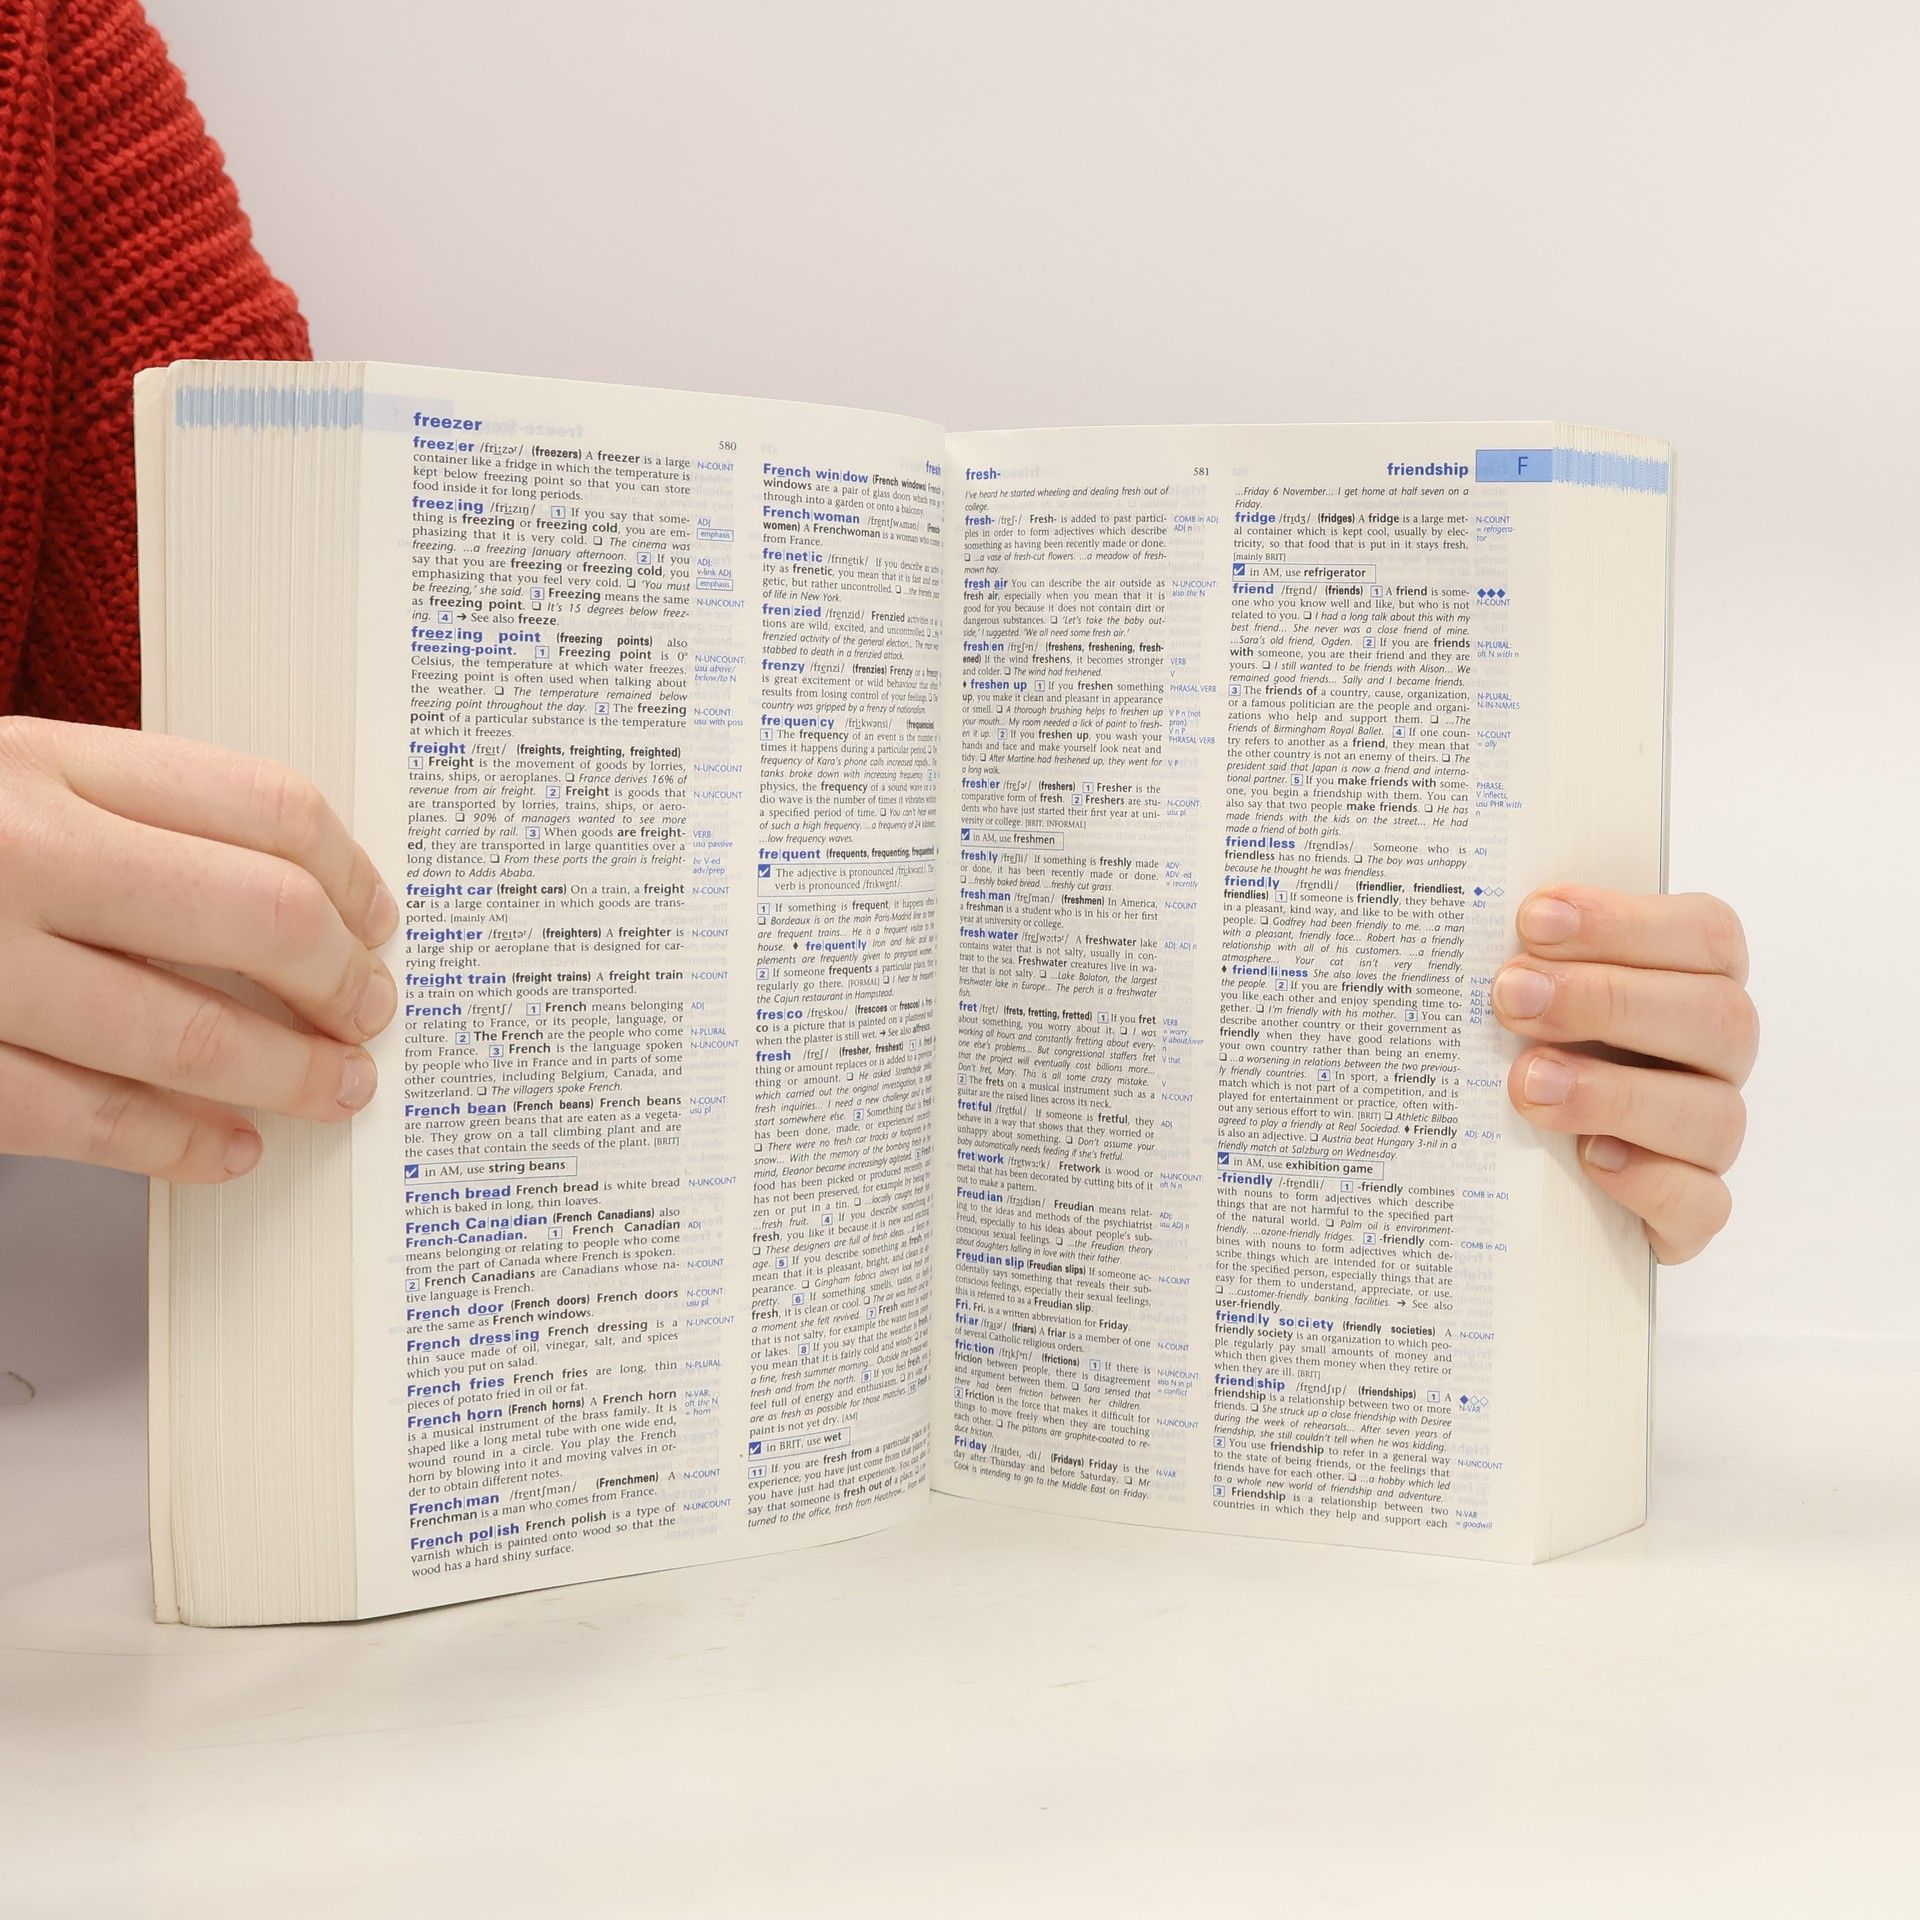 freezer
580
freez|er /friːzəʳ/ (freezers) A freezer is a large
container like a fridge in which the temperature is N-COUNT
kept below freezing point so that you can store
food inside it for long periods.
freez|ing /friːzɪŋ/ 1 If you say that some-
thing is freezing or freezing cold, you are em- ADJ
phasizing that it is very cold. ❏ The cinema was emphasis
freezing. ...a freezing January afternoon. 2 If you
say that you are freezing or freezing cold, you ADJ: v-link ADJ
emphasizing that you feel very cold. ❏ 'You must emphasis
be freezing,' she said. 3 Freezing means the same N-UNCOUNT
as freezing point. ❏ It's 15 degrees below freez-
ing. 4 → See also freeze.
freez|ing point (freezing points) also
freezing-point. 1 Freezing point is 0° N-UNCOUNT:
Celsius, the temperature at which water freezes. usu above/
Freezing point is often used when talking about below/to N
the weather. ❏ The temperature remained below
freezing point throughout the day. 2 The freezing N-COUNT:
point of a particular substance is the temperature usu with poss
at which it freezes.
freight /freɪt/ (freights, freighting, freighted)
1 Freight is the movement of goods by lorries, N-UNCOUNT
trains, ships, or aeroplanes. ❏ France derives 16% of
revenue from air freight. 2 Freight is goods that N-UNCOUNT
are transported by lorries, trains, ships, or aero-
planes. ❏ 90% of managers wanted to see more
freight carried by rail. 3 When goods are freight- VERB:
ed, they are transported in large quantities over a usu passive
long distance. ❏ From these ports the grain is freight- be V-ed
ed down to Addis Ababa. adv/prep
freight car (freight cars) On a train, a freight N-COUNT
car is a large container in which goods are trans-
ported. [mainly AM]
freight|er /freɪtəʳ/ (freighters) A freighter is N-COUNT
a large ship or aeroplane that is designed for car-
rying freight.
freight train (freight trains) A freight train N-COUNT
is a train on which goods are transported.
French /frentʃ/ 1 French means belonging ADJ
or relating to France, or its people, language, or
culture. 2 The French are the people who come N-PLURAL
from France. 3 French is the language spoken N-UNCOUNT
by people who live in France and in parts of some
other countries, including Belgium, Canada, and
Switzerland. ❏ The villagers spoke French.
French bean (French beans) French beans N-COUNT:
are narrow green beans that are eaten as a vegeta- usu pl
ble. They grow on a tall climbing plant and are
the cases that contain the seeds of the plant. [BRIT]
☑ in AM, use string beans
French bread French bread is white bread N-UNCOUNT
which is baked in long, thin loaves.
French Ca|na|dian (French Canadians) also
French-Canadian. 1 French Canadian ADJ
means belonging or relating to people who come
from the part of Canada where French is spoken.
2 French Canadians are Canadians whose na- N-COUNT
tive language is French.
French door (French doors) French doors N-COUNT:
are the same as French windows. usu pl
French dress|ing French dressing is a N-UNCOUNT
thin sauce made of oil, vinegar, salt, and spices
which you put on salad.
French fries French fries are long, thin N-PLURAL
pieces of potato fried in oil or fat.
French horn (French horns) A French horn N-VAR:
is a musical instrument of the brass family. It is oft the N
shaped like a long metal tube with one wide end, = horn
wound round in a circle. You play the French
horn by blowing into it and moving valves in or-
der to obtain different notes.
French|man /frentʃmən/ (Frenchmen) A N-COUNT
Frenchman is a man who comes from France.
French pol|ish French polish is a type of N-UNCOUNT
varnish which is painted onto wood so that the
wood has a hard shiny surface.
fresh
French win|dow (French windows) French
windows are a pair of glass doors which you go
through into a garden or onto a balcony.
French|woman /frentʃwʊmən/ (French-
women) A Frenchwoman is a woman who comes
from France.
fre|net|ic /frɪnetɪk/ If you describe an activ-
ity as frenetic, you mean that it is fast and
getic, but rather uncontrolled. ❏ ...the frenetic pace
of life in New York.
fren|zied /frenzid/ Frenzied activities or
tions are wild, excited, and uncontrolled. ❏ ...the
frenzied activity of the general election... The man was
stabbed to death in a frenzied attack.
frenzy /frenzi/ (frenzies) Frenzy or a frenzy
is great excitement or wild behaviour that often
results from losing control of your feelings. ❏ The
country was gripped by a frenzy of nationalism.
fre|quen|cy /friːkwənsi/ (frequencies)
1 The frequency of an event is the number of
times it happens during a particular period. ❏ The
frequency of Kara's phone calls increased rapidly...
tanks broke down with increasing frequency. 2 In
physics, the frequency of a sound wave or a
dio wave is the number of times it vibrates within
a specified period of time. ❏ You can't hear waves
of such a high frequency. ...a frequency of 24 kilohertz.
...low frequency waves.
fre|quent (frequents, frequenting, frequented)
☑ The adjective is pronounced /friːkwənt/. The
verb is pronounced /frɪkwent/.
1 If something is frequent, it happens often.
❏ Bordeaux is on the main Paris-Madrid line so there
are frequent trains... He is a frequent visitor to the
house. ♦ fre|quent|ly Iron and folic acid
plements are frequently given to pregnant women.
2 If someone frequents a particular place, they
regularly go there. [FORMAL] ❏ I hear he frequents
the Cajun restaurant in Hampstead.
fres|co /freskoʊ/ (frescoes or frescos) A fres-
co is a picture that is painted on a plastered wall
when the plaster is still wet. → See also alfresco.
fresh /freʃ/ (fresher, freshest) 1 A fresh
thing or amount replaces or is added to a previous
thing or amount. ❏ He asked Strathclyde police,
which carried out the original investigation, to make
fresh inquiries... I need a new challenge and a fresh
start somewhere else. 2 Something that is fresh
has been done, made, or experienced recently.
❏ There were no fresh car tracks or footprints in the
snow... With the memory of the bombing fresh in her
mind, Eleanor became increasingly agitated. 3 Fresh
food has been picked or produced recently, and
has not been preserved, for example by being fro-
zen or put in a tin. ❏ ...locally caught fresh fish.
...fresh fruit. 4 If you describe something as
fresh, you like it because it is new and exciting.
❏ These designers are full of fresh ideas.
age. 5 If you describe something as fresh, you
mean that it is pleasant, bright, and clean in ap-
pearance. ❏ Gingham fabrics always look fresh and
pretty. 6 If something smells, tastes, or feels
fresh, it is clean or cool. ❏ The air was fresh and
a moment she felt revived. 7 Fresh water is water
that is not salty, for example the water from rivers
or lakes. 8 If you say that the weather is fresh,
you mean that it is fairly cold and windy. ❏ It was
a fine, fresh summer morning... Outside the breeze was
fresh and from the north. 9 If you feel fresh, you
feel full of energy and enthusiasm. ❏
are as fresh as possible for those matches. 10 Fresh
paint is not yet dry. [AM]
☑ in BRIT, use wet
11 If you are fresh from a particular place or
experience, you have just come from that place or
you have just had that experience. You can also
say that someone is fresh out of a place. ❏
turned to the office, fresh from Heathrow... From what
fresh-
581
I've heard he started wheeling and dealing fresh out of
college.
fresh- /freʃ-/ Fresh- is added to past partici- COMB in ADJ:
ples in order to form adjectives which describe ADJ n
something as having been recently made or done.
❏ ...a vase of fresh-cut flowers. ...a meadow of fresh-
mown hay.
fresh air You can describe the air outside as N-UNCOUNT:
fresh air, especially when you mean that it is also the N
good for you because it does not contain dirt or
dangerous substances. ❏ 'Let's take the baby out-
side,' I suggested. 'We all need some fresh air.'
fresh|en /freʃᵊn/ (freshens, freshening, fresh-
ened) If the wind freshens, it becomes stronger VERB
and colder. ❏ The wind had freshened. V
♦ freshen up 1 If you freshen something PHRASAL VERB
up, you make it clean and pleasant in appearance
or smell. ❏ A thorough brushing helps to freshen up V P n (not
your mouth... My room needed a lick of paint to fresh- pron)
en it up. 2 If you freshen up, you wash your V n P
hands and face and make yourself look neat and PHRASAL VERB
tidy. ❏ After Martine had freshened up, they went for V P
a long walk.
fresh|er /freʃəʳ/ (freshers) 1 Fresher is the
comparative form of fresh. 2 Freshers are stu- N-COUNT:
dents who have just started their first year at uni- usu pl
versity or college. [BRIT, INFORMAL]
☑ in AM, use freshmen
fresh|ly /freʃli/ If something is freshly made ADV:
or done, it has been recently made or done. ADV -ed
❏ ...freshly baked bread. ...freshly cut grass. = recently
fresh|man /freʃmən/ (freshmen) In America, N-COUNT
a freshman is a student who is in his or her first
year at university or college.
fresh|water /freʃwɔːtəʳ/ A freshwater lake ADJ: ADJ n
contains water that is not salty, usually in con-
trast to the sea. Freshwater creatures live in wa-
ter that is not salty. ❏ ...Lake Balaton, the largest
freshwater lake in Europe... The perch is a freshwater
fish.
fret /fret/ (frets, fretting, fretted) 1 If you fret VERB
about something, you worry about it. ❏ I was = worry
working all hours and constantly fretting about every- V about/over
one else's problems... But congressional staffers fret n
that the project will eventually cost billions more... V that
Don't fret, Mary. This is all some crazy mistake. V
2 The frets on a musical instrument such as a N-COUNT
guitar are the raised lines across its neck.
fret|ful /fretfʊl/ If someone is fretful, they ADJ
behave in a way that shows that they worried or
unhappy about something. ❏ Don't assume your
baby automatically needs feeding if she's fretful.
fret|work /fretwɜːʳk/ Fretwork is wood or N-UNCOUNT:
metal that has been decorated by cutting bits of it oft N n
out to make a pattern.
Freud|ian /frɔɪdiən/ Freudian means relat- ADJ:
ing to the ideas and methods of the psychiatrist usu ADJ n
Freud, especially to his ideas about people's sub-
conscious sexual feelings. ❏ ...the Freudian theory
about daughters falling in love with their father.
Freud|ian slip (Freudian slips) If someone ac- N-COUNT
cidentally says something that reveals their sub-
conscious feelings, especially their sexual feelings,
this is referred to as a Freudian slip.
Fri. Fri. is a written abbreviation for Friday.
fri|ar /fraɪəʳ/ (friars) A friar is a member of one N-COUNT
of several Catholic religious orders.
fric|tion /frɪkʃᵊn/ (frictions) 1 If there is N-UNCOUNT:
friction between people, there is disagreement also N in pl
and argument between them. ❏ Sara sensed that = conflict
there had been friction between her children.
2 Friction is the force that makes it difficult for N-UNCOUNT
things to move freely when they are touching
each other. ❏ The pistons are graphite-coated to re-
duce friction.
Fri|day /fraɪdeɪ, -di/ (Fridays) Friday is the N-VAR
day after Thursday and before Saturday. ❏ Mr
Cook is intending to go to the Middle East on Friday.
friendship F
...Friday 6 November... I get home at half seven on a
Friday.
fridge /frɪdʒ/ (fridges) A fridge is a large met- N-COUNT
al container which is kept cool, usually by elec- = refrigera-
tricity, so that food that is put in it stays fresh. tor
[mainly BRIT]
☑ in AM, use refrigerator
friend /frend/ (friends) 1 A friend is some- ◆◆◆
one who you know well and like, but who is not N-COUNT
related to you. ❏ I had a long talk about this with my
best friend... She never was a close friend of mine.
...Sara's old friend, Ogden. 2 If you are friends N-PLURAL:
with someone, you are their friend and they are oft N with n
yours. ❏ I still wanted to be friends with Alison... We
remained good friends... Sally and I became friends.
3 The friends of a country, cause, organization, N-PLURAL:
or a famous politician are the people and organi- N-IN-NAMES
zations who help and support them. ❏ ...The
Friends of Birmingham Royal Ballet. 4 If one coun- N-COUNT
try refers to another as a friend, they mean that = ally
the other country is not an enemy of theirs. ❏ The
president said that Japan is now a friend and interna-
tional partner. 5 If you make friends with some- PHRASE:
one, you begin a friendship with them. You can V inflects,
also say that two people make friends. ❏ He has usu PHR with
made friends with the kids on the street... He had n
made a friend of both girls.
friend|less /frendləs/ Someone who is ADJ
friendless has no friends. ❏ The boy was unhappy
because he thought he was friendless.
friend|ly /frendli/ (friendlier, friendliest, ◆◇◇
friendlies) 1 If someone is friendly, they behave ADJ
in a pleasant, kind way, and like to be with other
people. ❏ Godfrey had been friendly to me. ...a man
with a pleasant, friendly face... Robert has a friendly
relationship with all of his customers. ...a friendly
atmosphere... Your cat isn't very friendly.
♦ friend|li|ness She also loves the friendliness of
the people. 2 If you are friendly with someone,
you like each other and enjoy spending time to-
gether. ❏ I'm friendly with his mother. 3 You can
describe another country or their government as
friendly when they have good relations with
your own country rather than being an enemy.
❏ ...a worsening in relations between the two previous-
ly friendly countries. 4 In sport, a friendly is a N-COUNT
match which is not part of a competition, and is
played for entertainment or practice, often with-
out any serious effort to win. [BRIT] ❏ Athletic Bilbao
agreed to play a friendly at Real Sociedad. ♦ Friendly ADJ: ADJ n
is also an adjective. ❏ Austria beat Hungary 3-nil in a
friendly match at Salzburg on Wednesday.
☑ in AM, use exhibition game
-friendly /-frendli/ 1 -friendly combines COMB in ADJ
with nouns to form adjectives which describe
things that are not harmful to the specified part
of the natural world. ❏ Palm oil is environment-
friendly. ...ozone-friendly fridges. 2 -friendly com- COMB in ADJ
bines with nouns to form adjectives which de-
scribe things which are intended for or suitable
for the specified person, especially things that are
easy for them to understand, appreciate, or use.
❏ ...customer-friendly banking facilities. → See also
user-friendly.
friend|ly so|ci|ety (friendly societies) A N-COUNT
friendly society is an organization to which peo-
ple regularly pay small amounts of money and
which then gives them money when they retire or
when they are ill. [BRIT]
friend|ship /frendʃɪp/ (friendships) 1 A ◆◇◇
friendship is a relationship between two or more N-VAR
friends. ❏ She struck up a close friendship with Desiree
during the week of rehearsals... After seven years of
friendship, she still couldn't tell when he was kidding.
2 You use friendship to refer in a general way N-UNCOUNT
to the state of being friends, or the feelings that
friends have for each other. ❏ ...a hobby which led
to a whole new world of friendship and adventure.
3 Friendship is a relationship between two N-VAR
countries in which they help and support each = goodwill